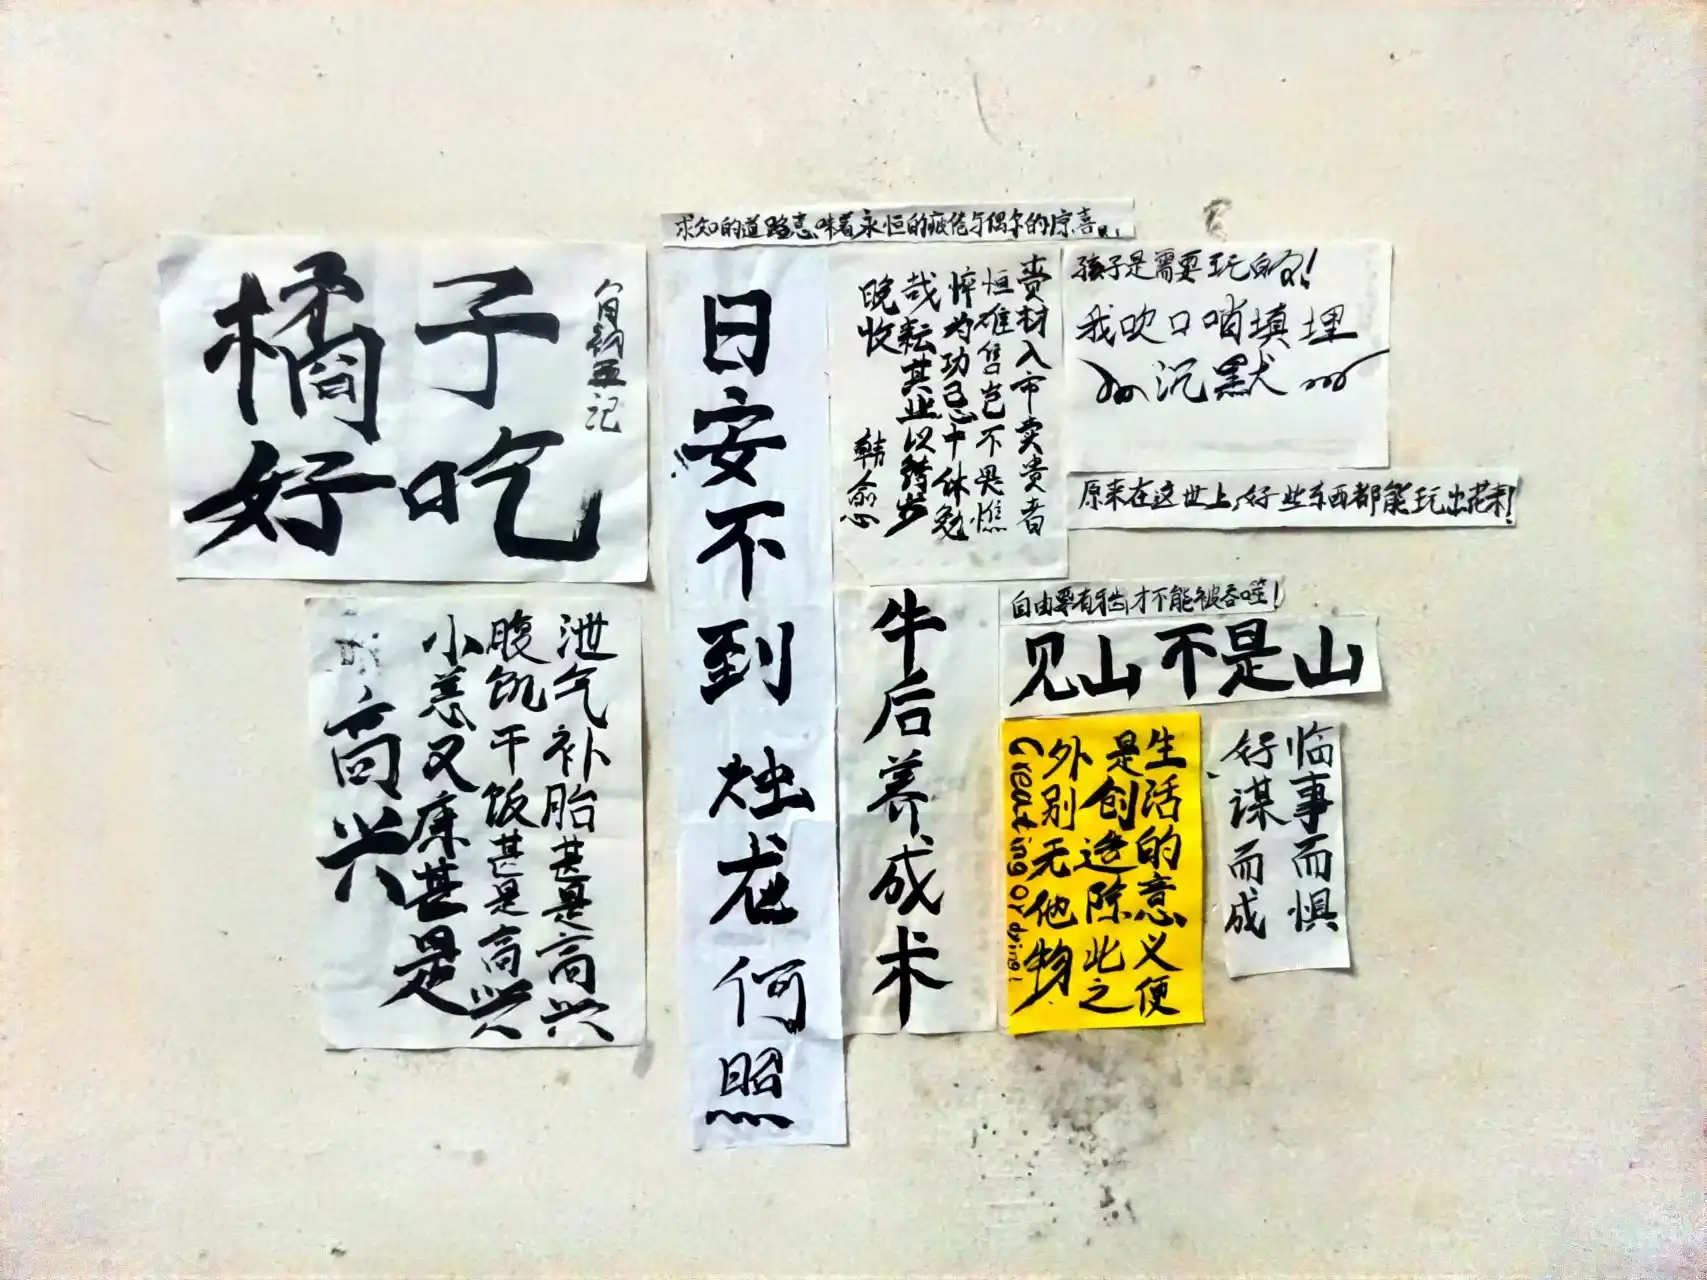 橘子
好吃
泄气补胎甚是高兴
腹饥干饭甚是高兴
小恙又康甚是
高兴
求知的道路意味着永恒的疲倦与偶尔的惊喜!
日安不到烛龙何照
赍材入市卖贵者
恒难售岂不畏憔
悴为功忌中休勉
哉耘其业以待岁
晚收
韩愈
孩子是需要玩的!
我吹口哨填埋
沉默
原来在这世上,好些东西都能玩出花来!
牛后养成术
自由要有独才不能被吞噬!
见山不是山
生活的意义便
是创造除此之
外别无他物
Creating or dying!
临事而惧
好谋而成